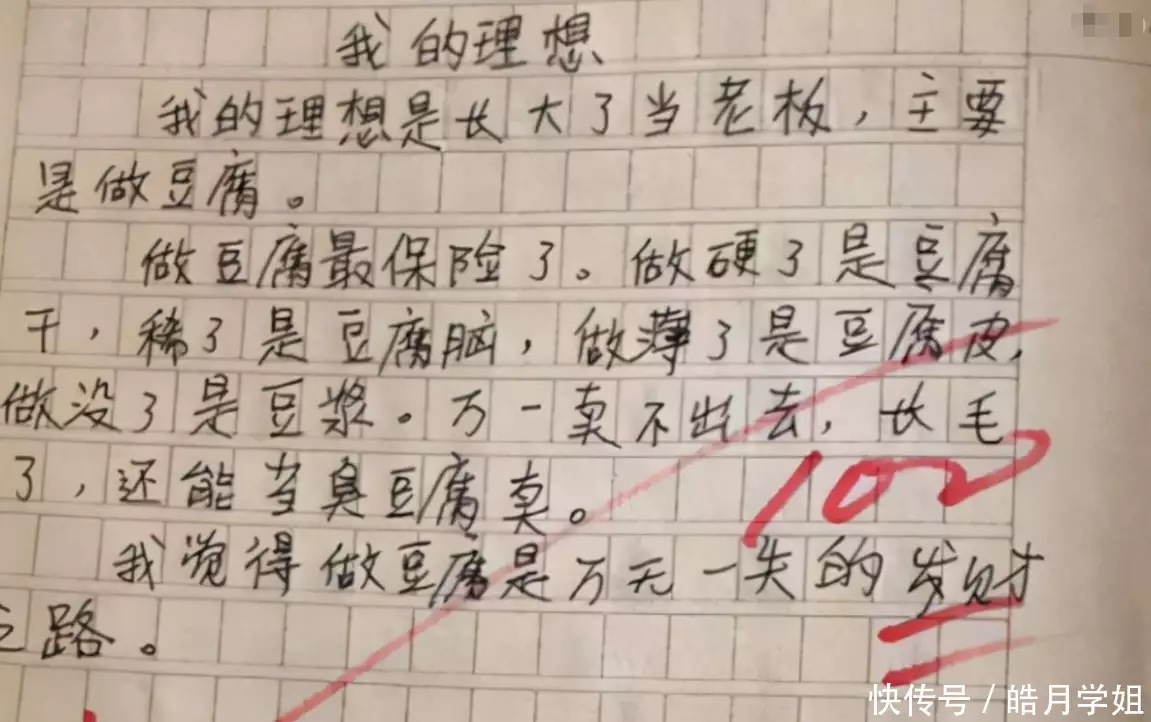 我的理想
我的理想是长大了当老板，主要
是做豆腐。
做豆腐最保险了。做硬了是豆腐
干，稀了是豆腐脑，做薄了是豆腐皮，
做没了是豆浆。万一卖不出去，长毛
了，还能当臭豆腐卖。
100
我觉得做豆腐是万无一失的发财
之路。
快传号/皓月学姐